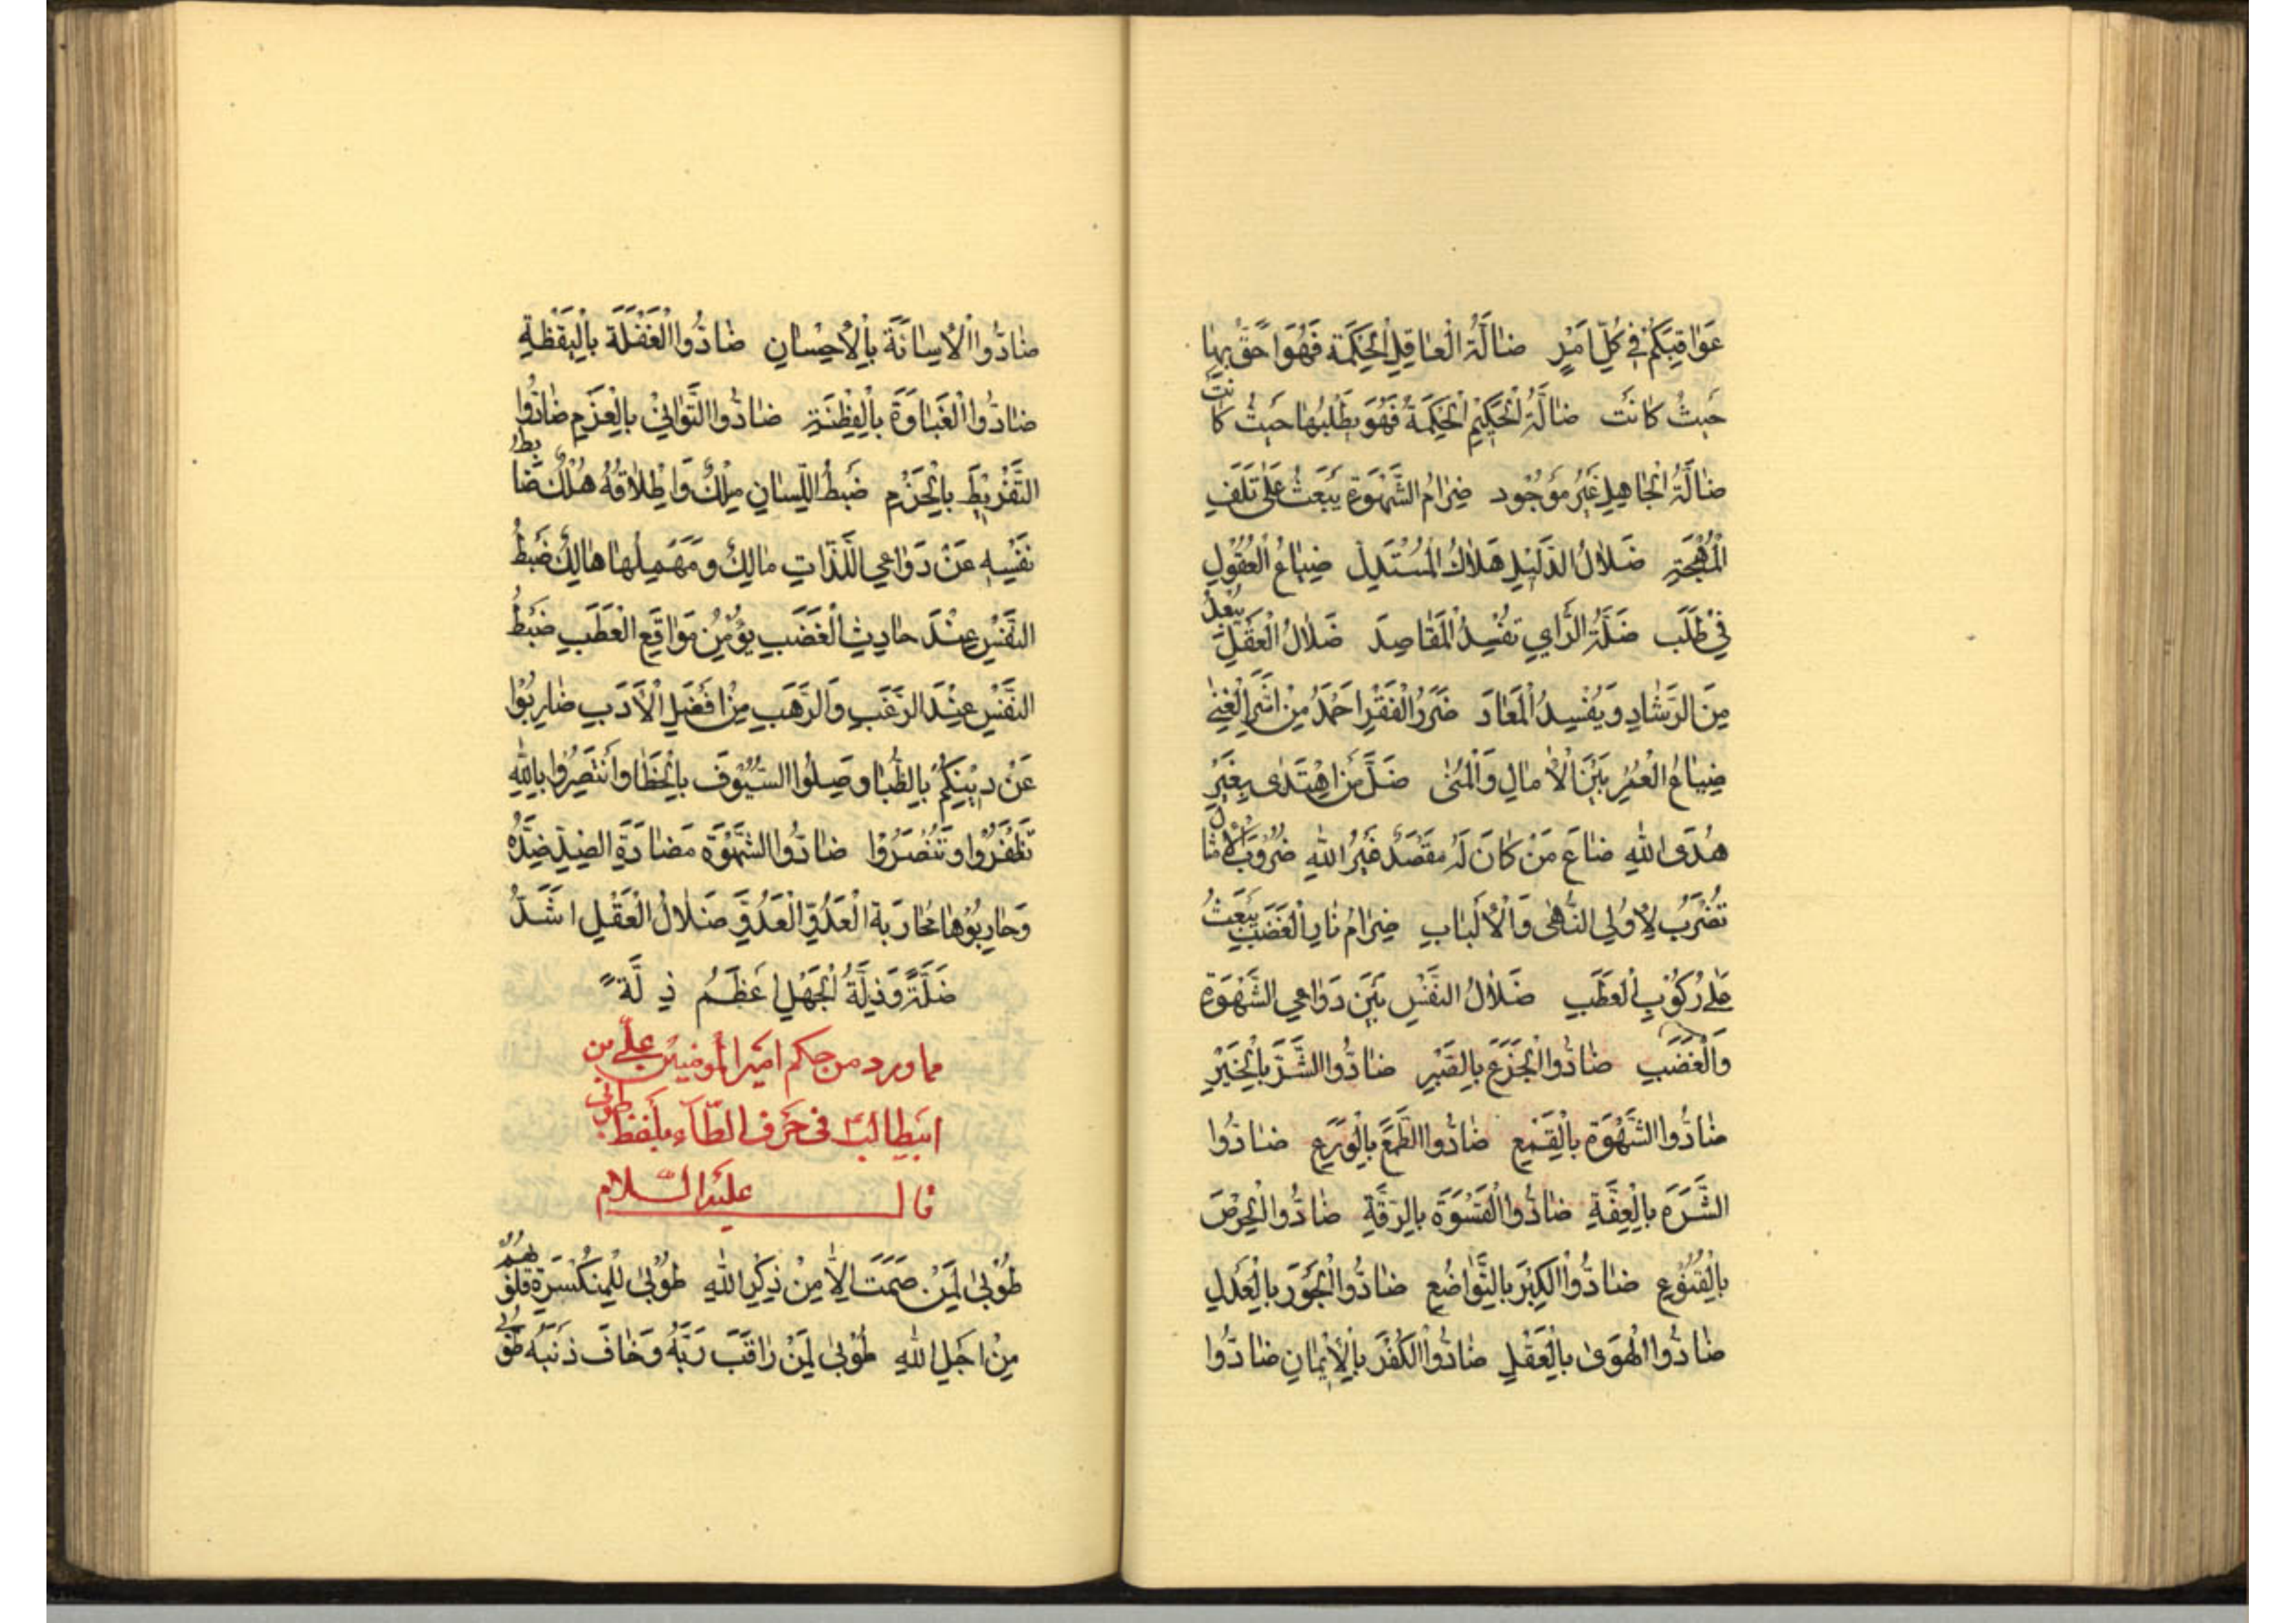 عَوٰاقِبَكُمْ فِي كُلِّ اَمْرٍ ضٰالَّةُ الْعٰاقِلِ الْحِكْمَةُ فَهُوَ اَحَقُّ بِهٰا
حَيْثُ كٰانَتْ ضٰالَّةُ الْحَكِيْمِ الْحِكْمَةُ فَهُوَ يَطْلُبُهٰا حَيْثُ كٰانَتْ
ضٰالَّةُ الْجٰاهِلِ غَيْرُ مَوْجُود ضِرٰامُ الشَّهْوَةِ يَبْعَثُ عَلىٰ تَلَفِ
الْمُهْجَةِ ضَلٰالُ الدَّلِيْلِ هَلٰاكُ الْمُسْتَدِلِّ ضِيٰاعُ الْعُقُوْلِ
فِيْ طَلَبِ ضَلَّةُ الرَّايِ تُفْسِدُ الْمَقٰاصِدَ ضَلٰالُ الْعَقْلِ يُبْعِدُ
مِنَ الرَّشٰادِ وَيُفْسِدُ الْمَعٰادَ ضَرَرُ الْفَقْرِ اَحْمَدُ مِنْ اَشَرِ الْغِنىٰ
ضِيٰاعُ الْعُمُرِ بَيْنَ الْاٰمٰالِ وَالْمُنىٰ ضَلَّ مَنِ اهْتَدٰى بِغَيْرِ
هُدَى اللهِ ضٰاعَ مَنْ كٰانَ لَهُ مَقْصَدٌ غَيْرُ اللهِ ضُرُوْبُ الْاَمْثٰالِ
تُضْرَبُ لِاُولِي النُّهٰى وَالْاَلْبٰابِ ضِرٰامُ نٰارِ الْغَضَبِ يَبْعَثُ
عَلىٰ رُكُوْبِ الْعَطَبِ ضَلٰالُ النَّفْسِ بَيْنَ دَوٰاعِي الشَّهْوَةِ
وَالْغَضَبِ ضٰادُّوا الْجَزَعَ بِالصَّبْرِ ضٰادُّوا الشَّرَّ بِالْخَيْرِ
ضٰادُّوا الشَّهْوَةَ بِالْقَمْعِ ضٰادُّوا الطَّمَعَ بِالْوَرَعِ ضٰادُّوا
الشَّرَهَ بِالْعِفَّةِ ضٰادُّوا الْقَسْوَةَ بِالرِّقَّةِ ضٰادُّوا الْحِرْصَ
بِالْقُنُوْعِ ضٰادُّوا الْكِبْرَ بِالتَّوٰاضُعِ ضٰادُّوا الْجَوْرَ بِالْعَدْلِ
ضٰادُّوا الْهَوىٰ بِالْعَقْلِ ضٰادُّوا الْكُفْرَ بِالْاِيْمٰانِ ضٰادُّوا
ضٰادُّوا الْاِسٰائَةَ بِالْاِحْسٰانِ ضٰادُّوا الْغَفْلَةَ بِالْيَقْظَةِ
ضٰادُّوا الْغَبٰاوَةَ بِالْفِطْنَةِ ضٰادُّوا التَّوٰانِيْ بِالْعَزْمِ ضٰادُّوا
التَّفْرِيْطَ بِالْحَزْمِ ضَبْطُ اللِّسٰانِ مِلْكٌ وَاِطْلٰاقُهُ هُلْكٌ ضٰابِطُ
نَفْسِهِ عَنْ دَوٰاعِي اللَّذّٰاتِ مٰالِكٌ وَمُهْمِلُهٰا هٰالِكٌ ضَبْطُ
النَّفْسِ عِنْدَ حٰادِثِ الْغَضَبِ يُؤْمِنُ مَوٰاقِعَ الْعَطَبِ ضَبْطُ
النَّفْسِ عِنْدَ الرَّغَبِ وَالرَّهَبِ مِنْ اَفْضَلِ الْاَدَبِ ضٰارِبُوْا
عَنْ دِيْنِكُمْ بِالظُّبٰا وَصِلُوا السُّيُوْفَ بِالْخُطٰا وَانْتَصِرُوا بِاللهِ
تَظْفَرُوْا وَتُنْصَرُوْا ضٰادُّوا الشَّهْوَةَ مُضٰادَّةَ الضِّدِّ ضِدَّهُ
وَحٰارِبُوْهٰا مُحٰارَبَةَ الْعَدُوِّ الْعَدُوَّ ضَلٰالُ الْعَقْلِ اَشَدُّ
ضَلَّةً وَذِلَّةُ الْجَهْلِ اَعْظَمُ ذِلَّةً
مما ورد من حكم امير المؤمنين علي بن
ابيطالب ع في حرف الطّاء بلفظ طوبى
قال عليه السّلام
طُوْبىٰ لِمَنْ صَمَتَ اِلّٰا مِنْ ذِكْرِ اللهِ طُوْبىٰ لِلْمُنْكَسِرَةِ قُلُوْبُهُمْ
مِنْ اَجْلِ اللهِ طُوْبىٰ لِمَنْ رٰاقَبَ رَبَّهُ وَخٰافَ ذَنْبَهُ طُوْبىٰ